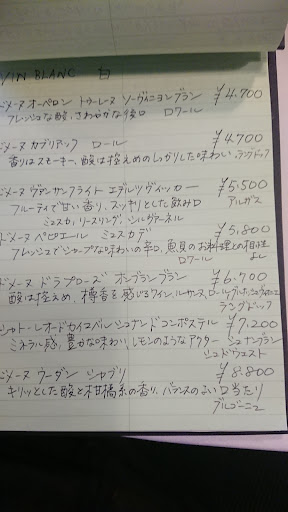 VIN BLANC 白
ドメーヌ オーペロン トゥーレーヌ ソーヴィニヨンブラン ¥4.700
フレッシュな酸、さわやかな後口 ロワール
ドメーヌ カブリアック ロール ¥4.700
香りはスモーキー、酸は控えめのしっかりした味わい ラングドック
ドメーヌ ヴァンサンフライト エデルツヴィッカー ¥5.500
フルーティで甘い香り、スッキリとした飲み口 アルザス
ミュスカ、リースリング、シルヴァーネル
ドメーヌ ペピエール ミュスカデ ¥5.800
フレッシュでシャープな味わいの辛口、魚貝のお料理との相性よし
ロワール
ドメーヌ ドラプローズ オンブランブラン ¥6.700
酸は控えめ、樽香を感じるワイン、ルーサンヌ、
ラングドック
シャトーレオードカイスベル ジュナンドコンポステル ¥7.200
ミネラル感、豊かな味わい、レモンのようなアフター ジュランソン
シュドウェスト
ドメーヌ ウーダン シャブリ ¥8.800
キリッとした酸と柑橘系の香り、バランスのよい口当たり
ブルゴーニュ